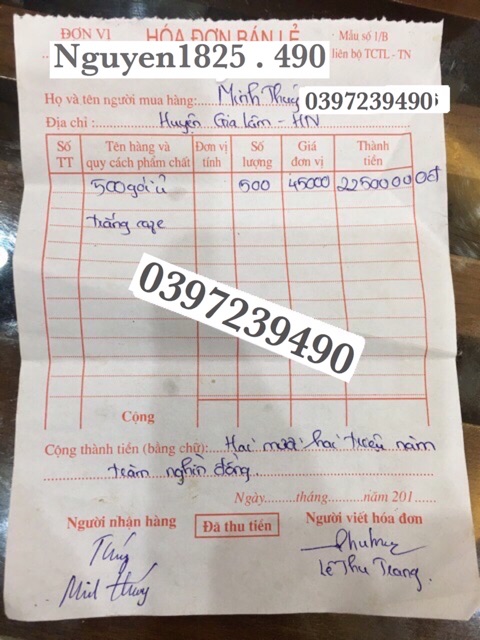 ĐƠN VỊ HÓA ĐƠN BÁN LẺ Mẫu số 1/B
Nguyen1825 . 490 liên bộ TCTL - TN
Họ và tên người mua hàng: Minh Thúy 0397239490
Địa chỉ : Huyện Gia Lâm - HN
Số TT Tên hàng và quy cách phẩm chất Đơn vị tính Số lượng Giá đơn vị Thành tiền
500 gói ủ 500 45000 22500000đ
trắng
0397239490
Cộng
Cộng thành tiền (bằng chữ): Hai mươi hai triệu năm
trăm nghìn đồng
Ngày......tháng......năm 201......
Người nhận hàng Đã thu tiền Người viết hóa đơn
Thúy
Minh Thúy Lê Thu Trang